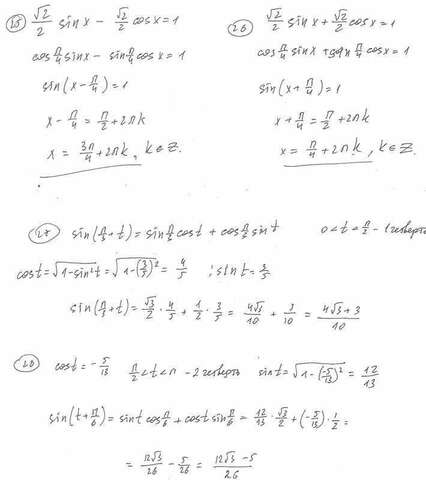 25 √2/2 sinx − √2/2 cosx = 1
cos π/4 sinx − sin π/4 cosx = 1
sin(x − π/4) = 1
x − π/4 = π/2 + 2πk
x = 3π/4 + 2πk, k∈Z.
26 √2/2 sinx + √2/2 cosx = 1
cos π/4 sinx + sin π/4 cosx = 1
sin(x + π/4) = 1
x + π/4 = π/2 + 2πk
x = π/4 + 2πk, k∈Z.
27 sin(π/3 + t) = sin π/3 cost + cos π/3 sint 0 < t < π/2 − 1 четверть
cost = √(1−sin²t) = √(1−(3/5)²) = 4/5 ; sint = 3/5
sin(π/3 + t) = √3/2 · 4/5 + 1/2 · 3/5 = 4√3/10 + 3/10 = (4√3 + 3)/10
28 cost = −5/13 π/2 < t < π − 2 четверть sint = √(1−(−5/13)²) = 12/13
sin(t + π/6) = sint cos π/6 + cost sin π/6 = 12/13 · √3/2 + (−5/13) · 1/2 =
= 12√3/26 − 5/26 = (12√3 − 5)/26